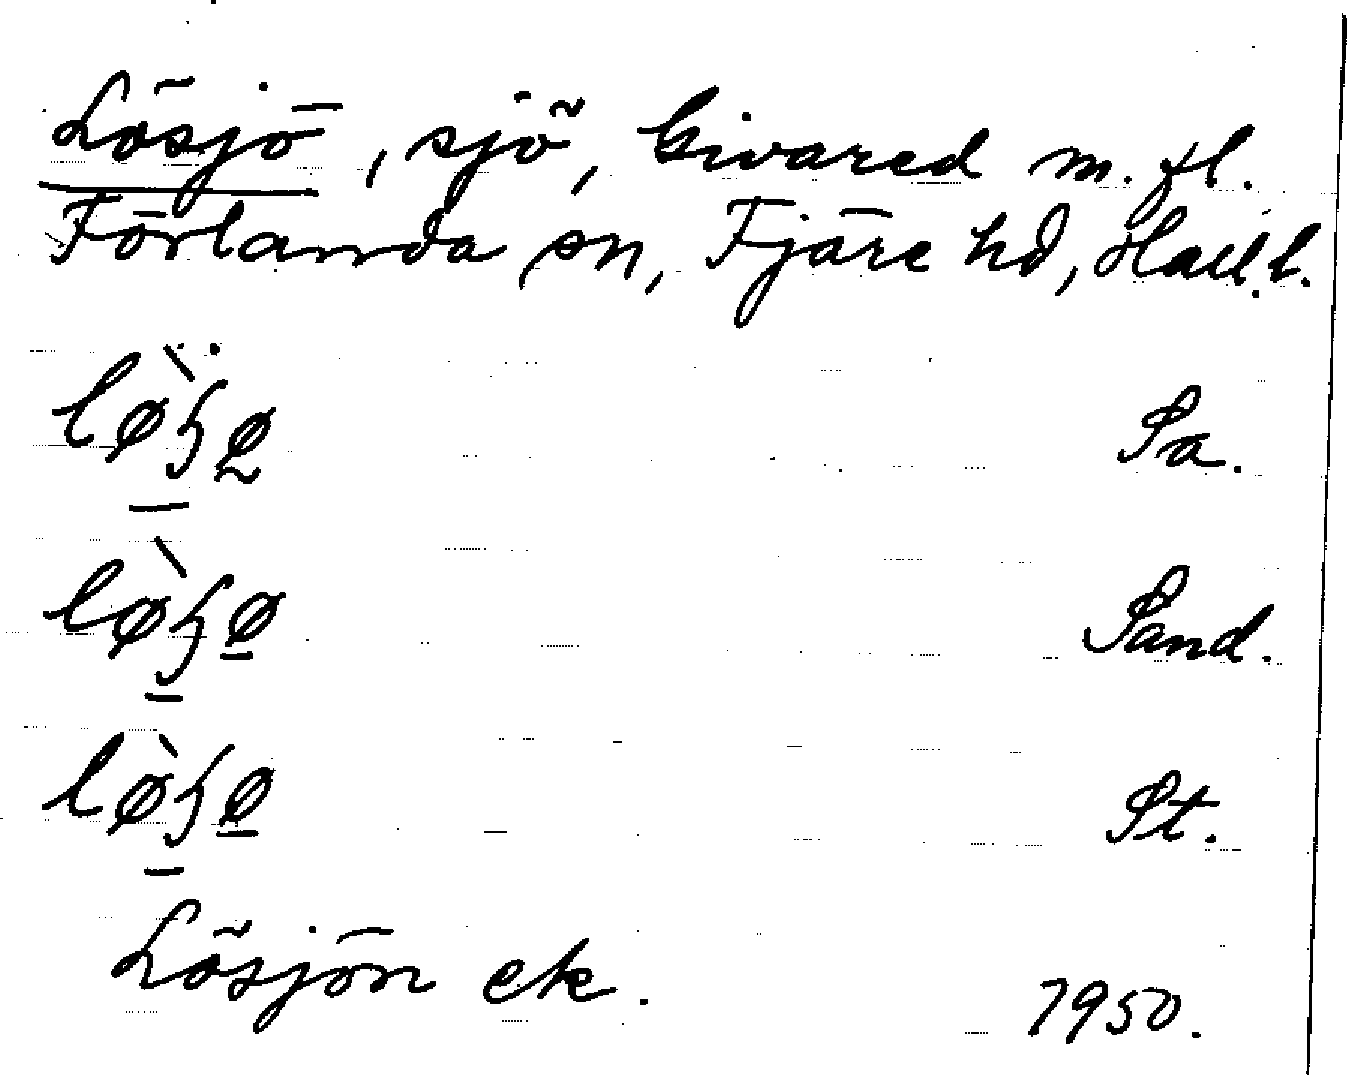 Lösjö, sjö, Givared m. fl.
Förlanda sn, Fjäre hd, Hall.l.
Sa.
Sand.
St.
Lösjön ek.
1950.